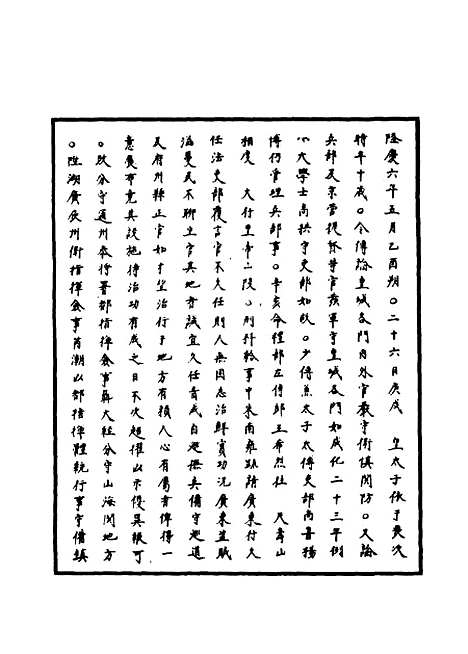 隆慶六年五月乙酉朔○二十六日庚戌　皇太子依于喪次
時年十歲○令傳諭皇城各門內外官嚴守衛慎関防○又諭
兵部及京營提督等官撥軍守皇城各門如成化二十三年例
○大學士高拱守吏部如故○少傅兼太子太傅吏部尚書楊
博仍管理兵部事○辛亥命禮部左侍郎王希烈往　天壽山
相度　大行皇帝山陵○刑科給事中宋南雍疏請廣東行久
任法吏部覆言官不久任則人無固志治鮮實功況廣東盜賊
滋蔓民不聊生官其地者誠宜久任責成自巡撫兵備守巡道
及府州縣正官如才望治行于地方有積人心有屬者俾得一
意展布竟其設施待治功有成之日不次超擢以示優異報可
○改分守通州叅將署都指揮僉事聶大經分守山海関地方
○陞湖廣辰州衛指揮僉事芮潮以都指揮體統行事守備鎮